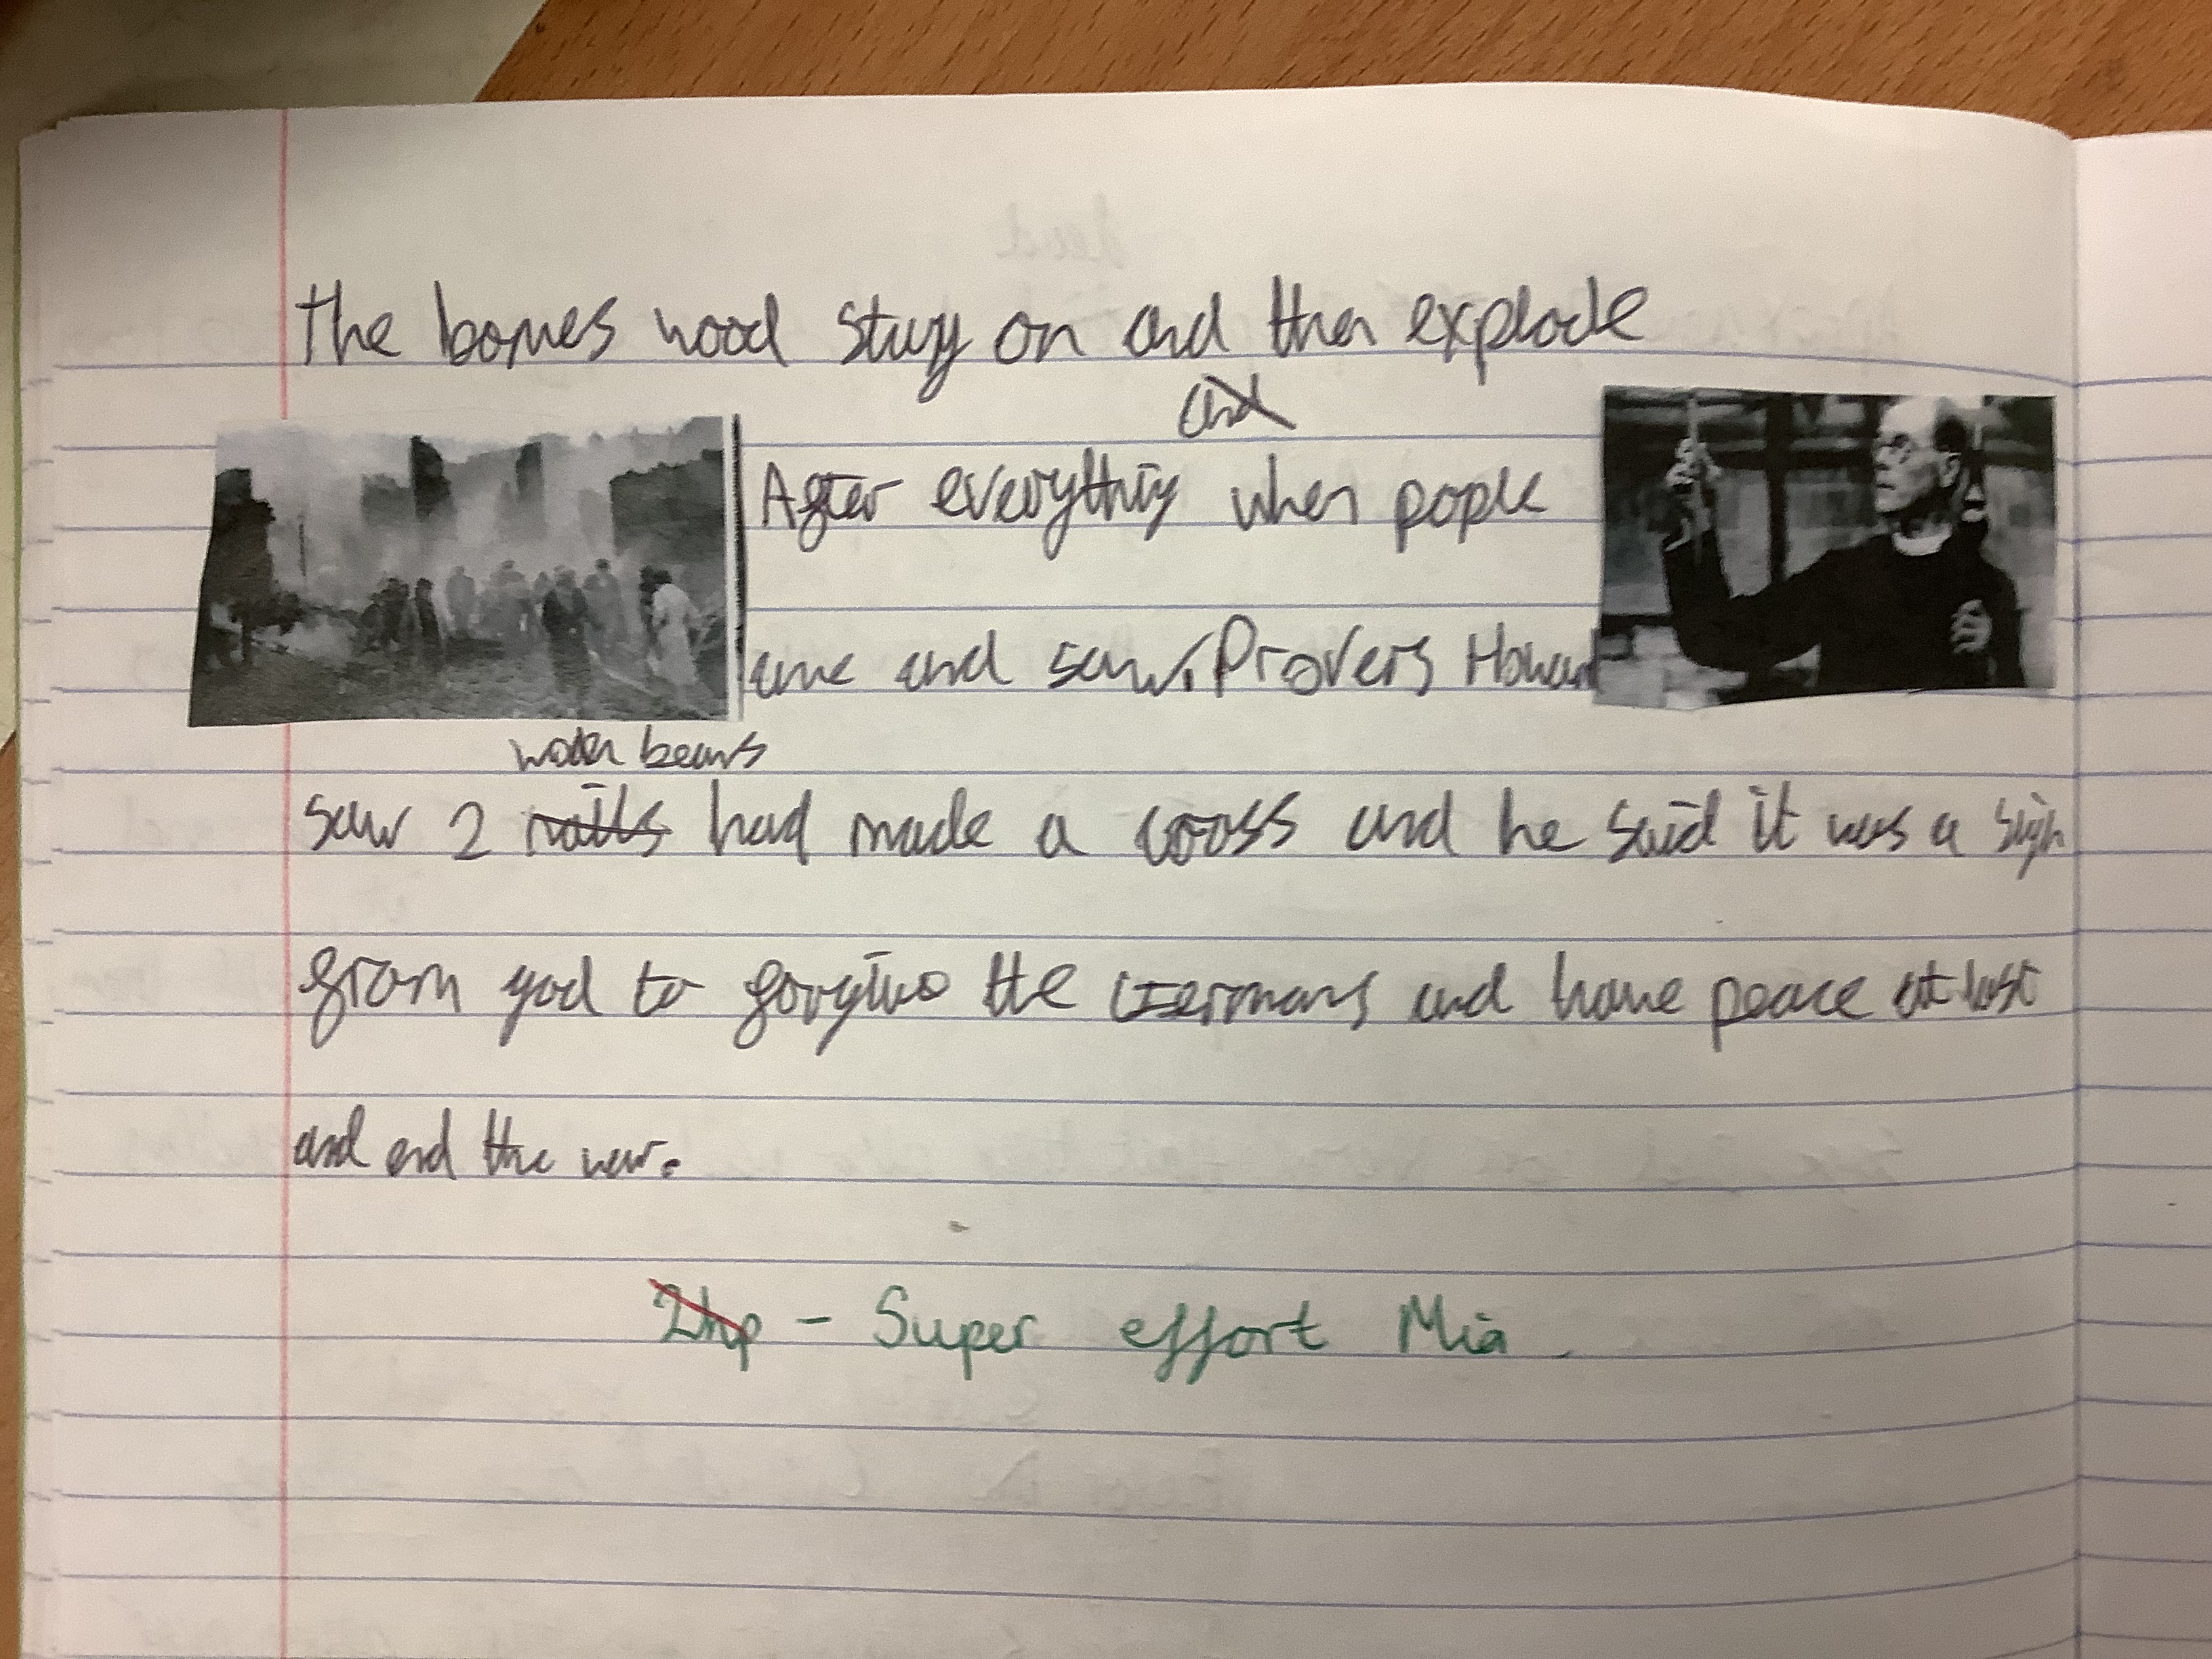 The bomes wood stay on and then explode
and
After everything when pople
came and saw. Provers Howard
woden beams
saw 2 nails had made a cross and he said it was a sign
from god to forgive the Germans and have peace at last
and end the war.
2hp - Super effort Mia.